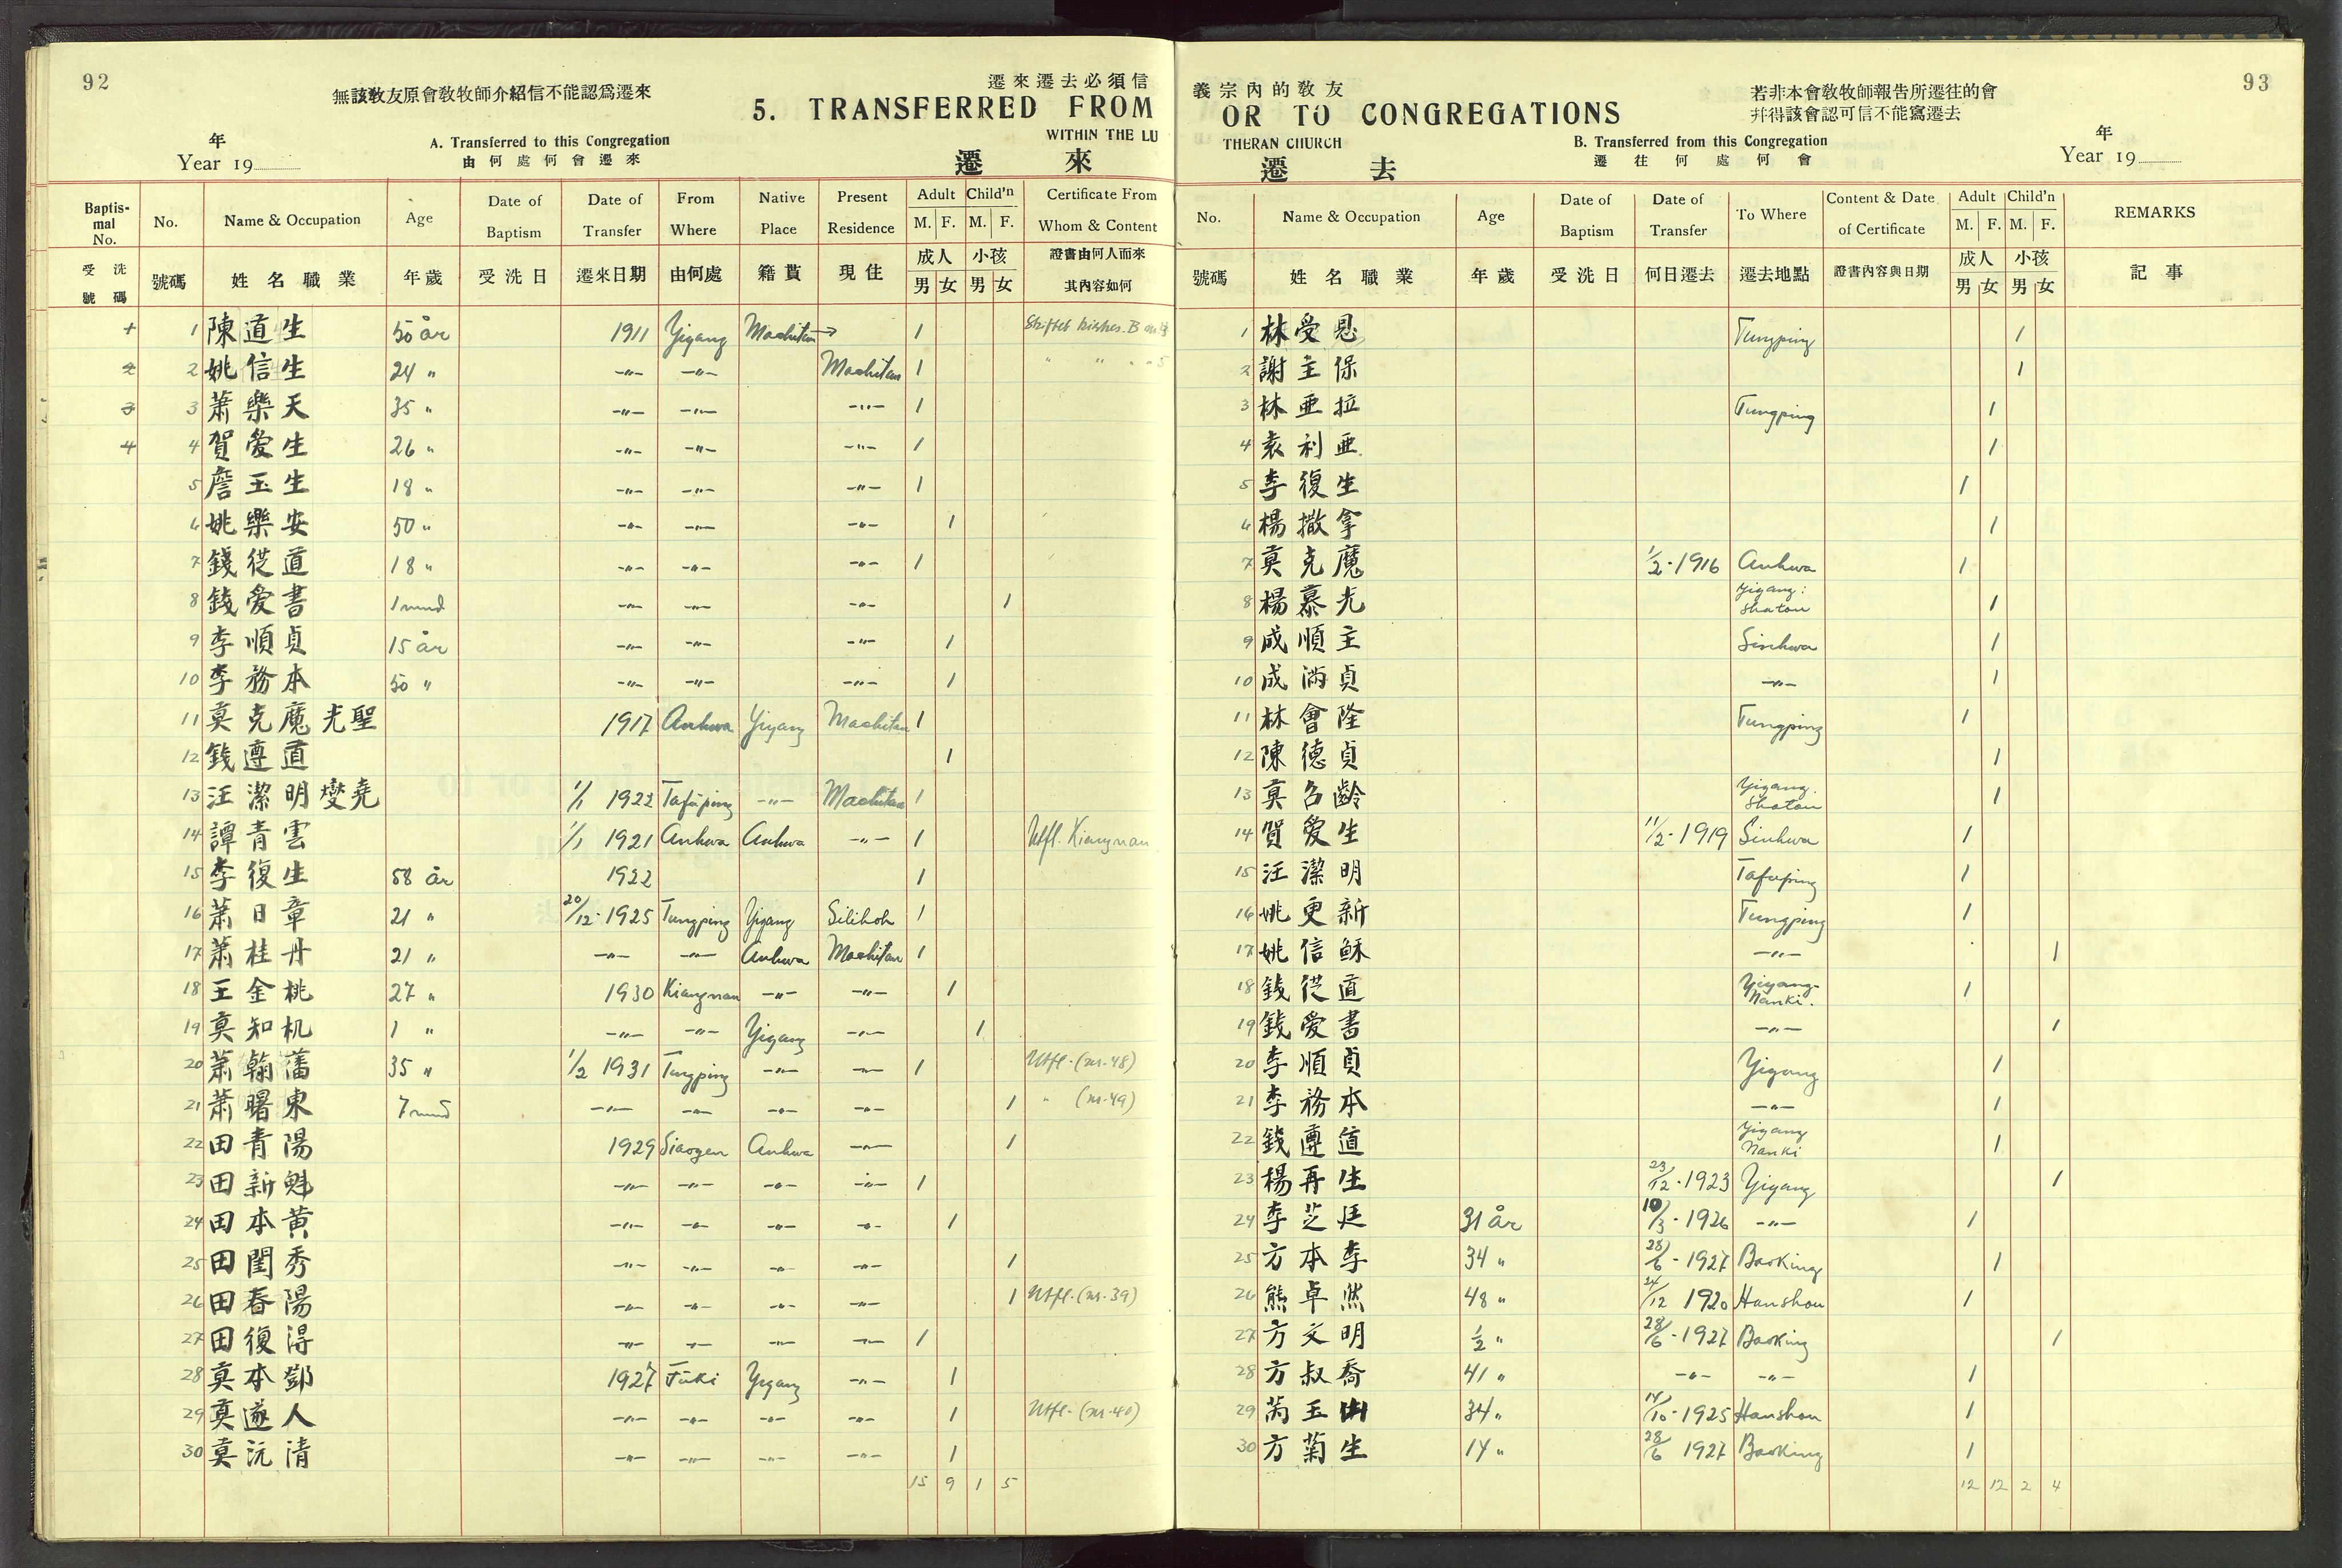 92
無該教友原會教牧師介紹信不能認爲遷來
遷來遷去必須信
5. TRANSFERRED FROM
年
Year 19
A. Transferred to this Congregation
由何處何會遷來
WITHIN THE LU
遷 來
Baptis-mal No. No. Name & Occupation Age Date of Baptism Date of Transfer From Where Native Place Present Residence Adult M. F. Child'n M. F. Certificate From Whom & Content
受洗號碼 號碼 姓名職業 年歲 受洗日 遷來日期 由何處 籍貫 現住 成人 男 女 小孩 男 女 證書由何人而來其內容如何
1 陳道生 50 år 1911 Yiyang Machitan → 1
2 2 姚信生 24 " -"- -"- Machitan 1
3 3 萧樂天 35 " -"- -"- -"- 1
4 4 賀愛生 26 " -"- -"- -"- 1
5 詹玉生 18 " -"- -"- -"- 1
6 姚樂安 50 " -"- -"- -"- 1
7 錢從道 18 " -"- -"- -"- 1
8 錢愛書 1 mnd -"- -"- -"- 1
9 李順貞 15 år -"- -"- -"- 1
10 李務本 50 " -"- -"- -"- 1
11 莫克魔 光聖 1917 Anhwa Yiyang Machitan 1
12 錢遵道 1
13 汪潔明 燮堯 1/1 1922 Tafuping -"- Machitan 1
14 譚青雲 1/1 1921 Anhwa Anhwa -"- 1 Utfl. Kiangnan
15 李復生 58 år 1922 1
16 萧日章 21 " 20/12-1925 Tungping Yiyang Silihoh 1
17 萧桂丹 21 " -"- -"- Anhwa Machitan 1
18 王金桃 27 " 1930 Kiangnan -"- -"- 1
19 莫知机 1 " -"- -"- Yiyang -"- 1
20 萧翰藩 35 " 1/2 1931 Tungping -"- -"- 1 Utfl. (nr. 48)
21 萧曙東 7 mnd -"- -"- -"- -"- 1 " (nr. 49)
22 田青陽 1929 Siaogen Anhwa -"- 1
23 田新魁 -"- -"- -"- -"- 1
24 田本黃 -"- -"- -"- -"- 1
25 田閨秀 -"- -"- -"- -"- 1
26 田春陽 -"- -"- -"- -"- 1 Utfl. (nr. 39)
27 田復得 -"- -"- -"- -"- 1
28 莫本鄧 1927 Fuki Yiyang -"- 1
29 莫遂人 -"- -"- -"- -"- 1 Utfl. (nr. 40)
30 莫沅清 -"- -"- -"- -"- 1
15 9 1 5
93
義宗內的教友
若非本會教牧師報告所遷往的會
幷得該會認可信不能寫遷去
OR TO CONGREGATIONS
THERAN CHURCH
遷 去
B. Transferred from this Congregation
遷往何處何會
年
Year 19
No. Name & Occupation Age Date of Baptism Date of Transfer To Where Content & Date of Certificate Adult M. F. Child'n M. F. REMARKS
號碼 姓名職業 年歲 受洗日 何日遷去 遷去地點 證書內容與日期 成人 男 女 小孩 男 女 記事
1 林受恩 Tungping 1
2 謝主保 1
3 林亜拉 Tungping 1
4 袁利亜 1
5 李復生 1
6 楊撒拿 1
7 莫克魔 1/2-1916 Anhwa 1
8 楊慕光 Yiyang: Shatou 1
9 成順主 Sinhwa 1
10 成滿貞 -"- 1
11 林會隆 Tungping 1
12 陳德貞 1
13 莫名齡 Yiyang. Shatou 1
14 賀愛生 11/2-1919 Sinhwa 1
15 汪潔明 Tafuping 1
16 姚更新 Tungping 1
17 姚信穌 -"- 1
18 錢從道 Yiyang-Nanki. 1
19 錢愛書 -"- 1
20 李順貞 Yiyang 1
21 李務本 -"- 1
22 錢遵道 Yiyang Nanki 1
23 楊再生 23/12-1923 Yiyang 1
24 李芝廷 31 år 10/3-1926 -"- 1
25 方本李 34 " 28/6-1927 Baoking 1
26 熊卓然 48 " 24/12 1920 Hanshou 1
27 方文明 1/2 " 28/6-1927 Baoking 1
28 方叔喬 41 " -"- -"- 1
29 玉 34 " 14/10-1925 Hanshou 1
30 方菊生 14 " 28/6 1927 Baoking 1
12 12 2 4